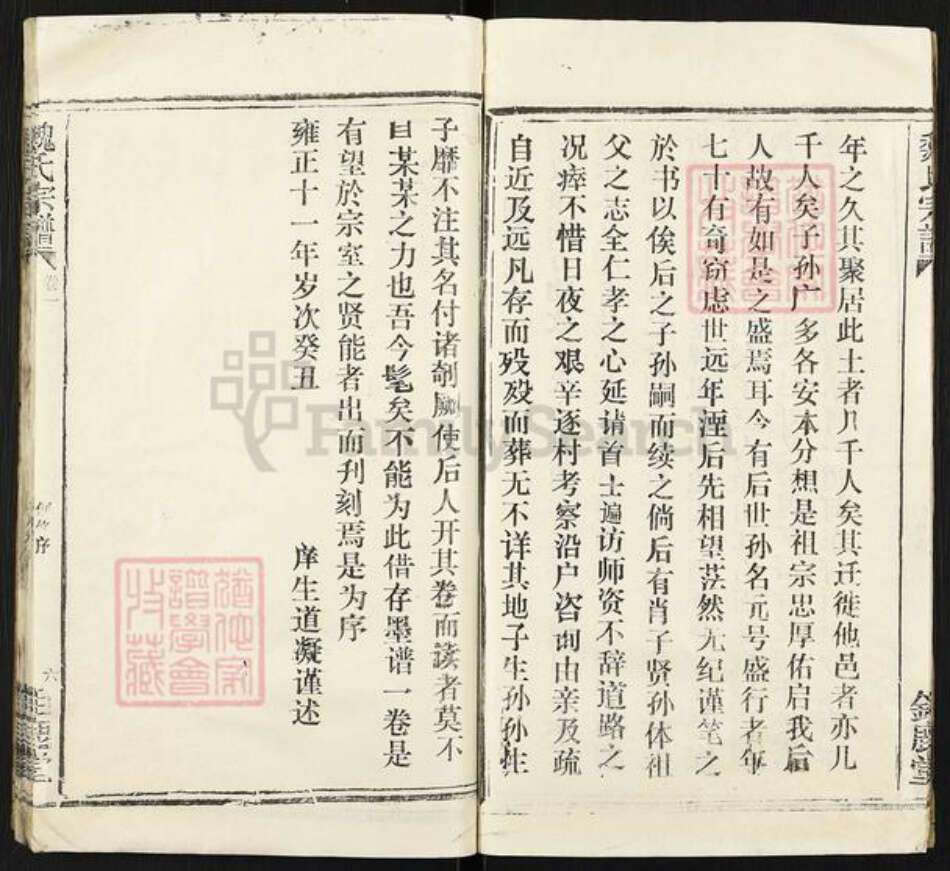 年之久其聚居此土者几千人矣其迁徙他邑者亦几
千人矣子孙广多各安本分想是祖宗忠厚佑启我后
人故有如是之盛焉耳今有后世孙名元号盛行者年
七十有奇窃虑世远年湮后先相望茫然无纪谨笔之
於书以俟后之子孙嗣而续之倘后有肖子贤孙体祖
父之志全仁孝之心延请首士遍访师资不辞道路之
况瘁不惜日夜之艰辛逐村考察沿户咨询由亲及疏
自近及远凡存而殁殁而葬无不详其地子生孙孙生
子靡不注其名付诸剞劂使后人开其卷而读者莫不
曰某某之力也吾今髦矣不能为此借存墨谱一卷是
有望於宗室之贤能者出而刋刻焉是为序
雍正十一年岁次癸丑
庠生道凝谨述
魏氏宗谱
卷一
序
六
FamilySearch
谱學會
收藏